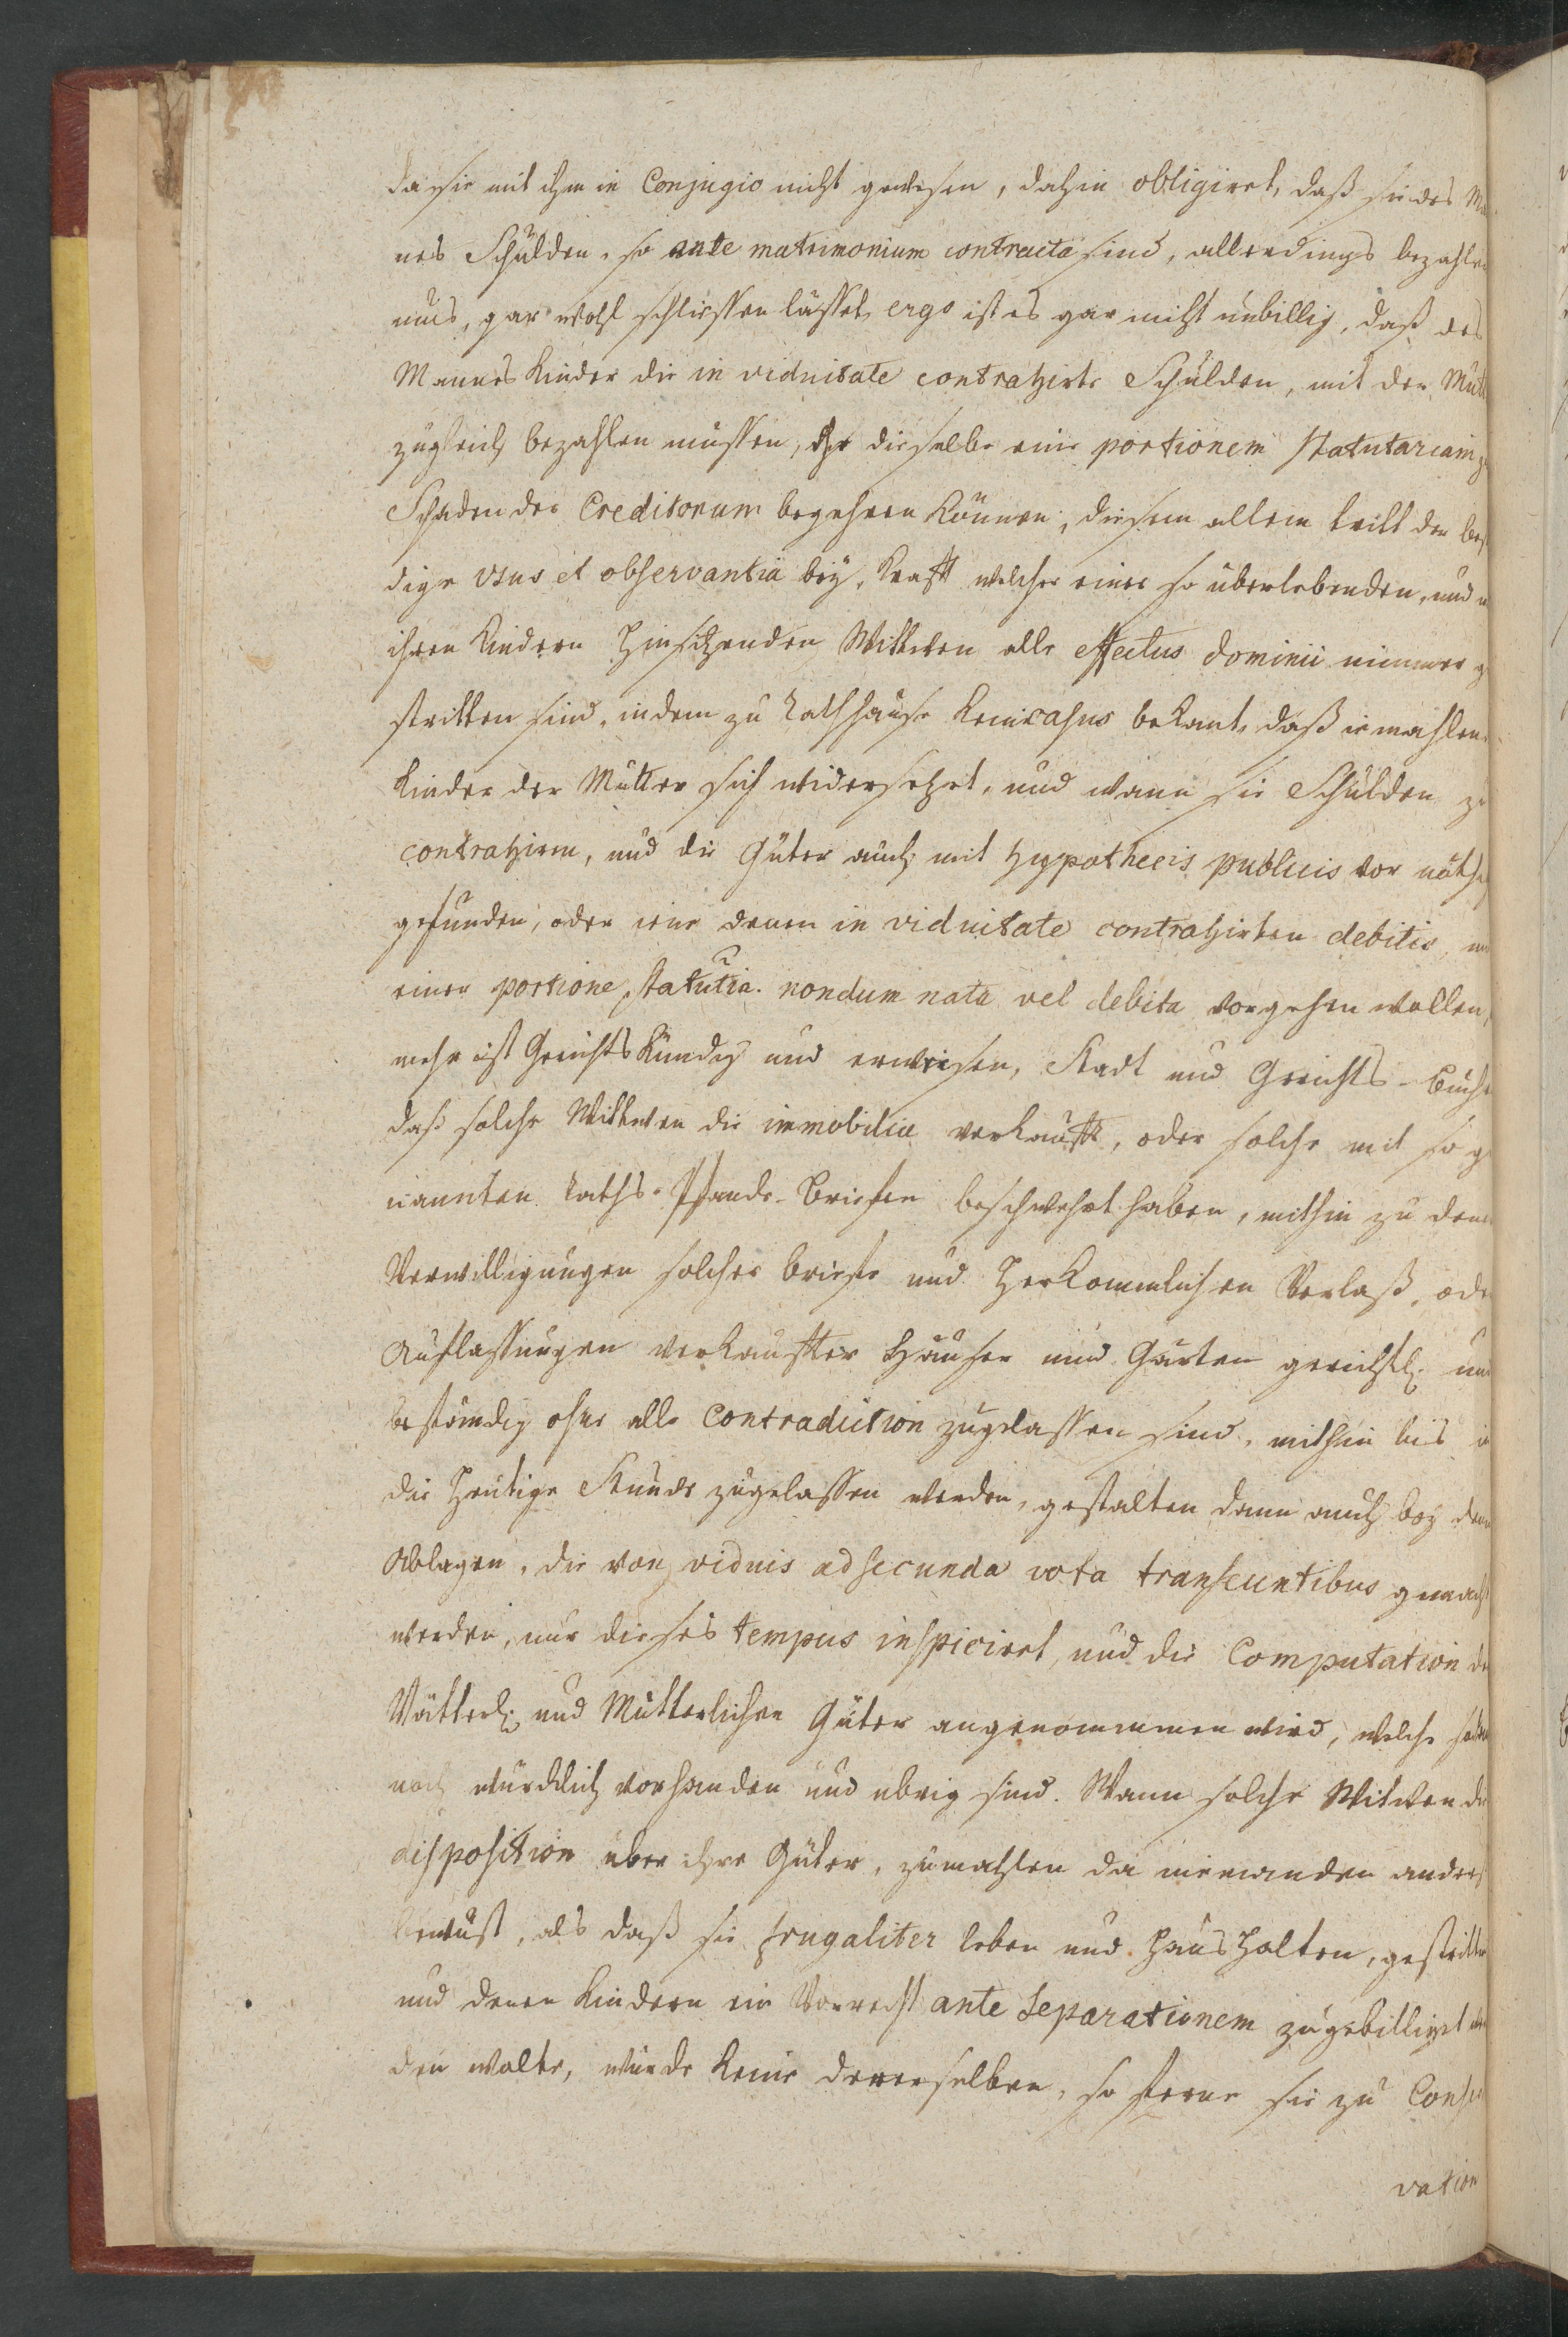 da sie mit ihm in Conjugio nicht gewesen, dahin obligiret, daß sie des Ma
nes Schulden, so ante matrimonium contracta sind, allerdings bezahlen
mus, gar wohl schliessen lässet, ergo ist es gar nicht unbillig, daß des
Mannes Kinder die in viduitate contrahirte Schulden, mit der Mutt
zugleich bezahlen müssen, ehe dieselbe eine portionem statutariam zu
Schaden der Creditorum begehren können, diesem allem tritt der bes
dige usus et observantia bey, Krafft welcher einer so überlebenden, und m
ihren Kindern hinsitzenden Wittwen alle effectus dominii nimmer ge
stritten sind, indem zu Rathhause kein casus bekant, daß iemahlen
Kinder der Mutter sich widersetzet, und wann sie Schulden zu
contrahiren, und die Güter auch mit hypothecis publicis vor nöthig
gefunden, oder eine denen in viduitate contrahirten debitis, mit
einer portione statutia. nondum nata vel debita vorgehen wollen,
mehr ist Gerichts kündig und erweisen, Stadt und Gerichts-Bücher
daß solche Wittwen die immobilia verkaufft, oder solche mit so ge
nannten Raths-Pfands-Briefen beschwehrt haben, mithin zu denen
Verwilligungen solcher briefe und herkommlichen Verlaß, oder
Auflassungen verkauffter Häuser und Gärten gerichtl. und
beständig ohne alle Contradiction zugelassen sind, mithin bis in
die heutige Stunde zugelassen werden, gestalten dann auch bey denen
Ablagen, die von viduis ad secunda vota transeuntibus gemacht
werden, nur dieses tempus inspiciret, und die Computation der
Vätterl. und Mütterlichen Güter angenommen wird, welche
noch würcklich vorhanden und übrig sind. Wann solche Witwen die
disposition über ihre Güter, zumahlen da niemanden anders
bewust, als daß sie frugaliter leben und haushalten, gestritten
und denen Kindern ein Vorrecht ante separationem zugebilliget wer
den wolte, würde keine dererselben, so ferne sie zu Conser
vation